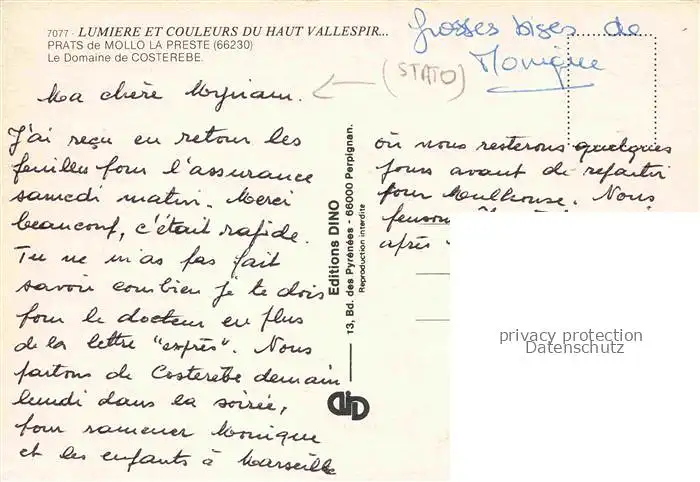 7077 - LUMIERE ET COULEURS DU HAUT VALLESPIR...
PRATS de MOLLO LA PRESTE (66230)
Le Domaine de COSTEREBE.
Grosses bises de
Monique
(STATO)
Ma chère Myriam.
J'ai reçu en retour les
feuilles pour l'assurance
samedi matin. Merci
beaucoup, c'était rapide.
Tu ne m'as pas fait
savoir combien je te dois
pour le docteur en plus
de la lettre "exprès". Nous
partons de Costerebe demain
lundi dans la soirée,
pour ramener Monique
et les enfants à Marseille
où nous resterons quelques
jours avant de repartir
pour Mulhouse. Nous
pensons
après
Editions DINO
13, Bd. des Pyrénées - 66000 Perpignan.
Reproduction interdite
privacy protection
Datenschutz